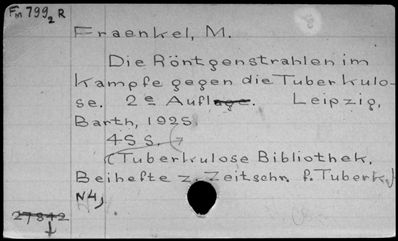 Fm 799₂ R
Fraenkel, M.
Die Röntgenstrahlen im
Kampfe gegen die Tuberkulo-
se. 2e Auflage. Leipzig,
Barth, 1925
45 S.
(Tuberkulose Bibliothek.
Beihefte z. Zeitschr. f. Tuberk.)
N4)
27842